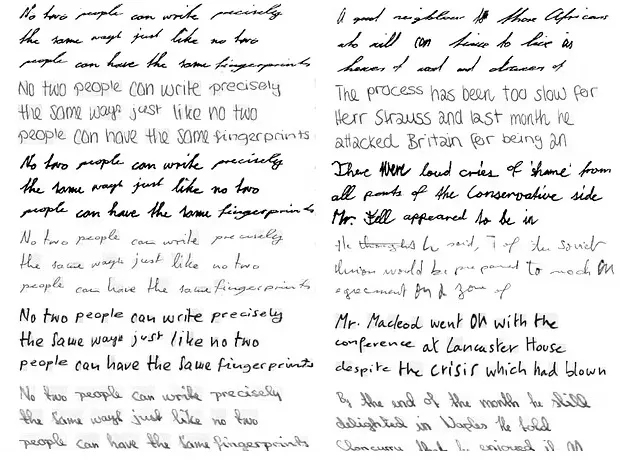 No two people can write precisely
the same ways just like no two
people can have the same fingerprints
No two people can write precisely
the same ways just like no two
people can have the same fingerprints
No two people can write precisely
the same ways just like no two
people can have the same fingerprints
No two people can write precisely
the same ways just like no two
people can have the same fingerprints
No two people can write precisely
the same ways just like no two
people can have the same fingerprints
No two people can write precisely
the same ways just like no two
people can have the same fingerprints
A good neighbour those Africans
who will continue to live as
hewers of wood and drawers of
The process has been too slow for
Herr Strauss and last month he
attacked Britain for being an
There were loud cries of 'shame' from
all parts of the Conservative side
Mr. Fell appeared to be in
He he said, of the Soviet
Union would be prepared to reach an
agreement on a zone of
Mr. Macleod went on with the
conference at Lancaster House
despite the crisis which had blown
By the end of the month he still
delighted in Naples he told
Cloncurry that he enjoyed it as